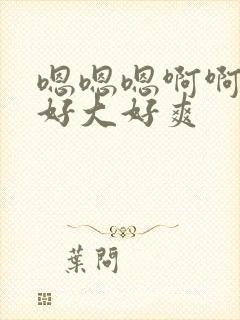 嗯嗯嗯啊啊
好大好爽
葉問